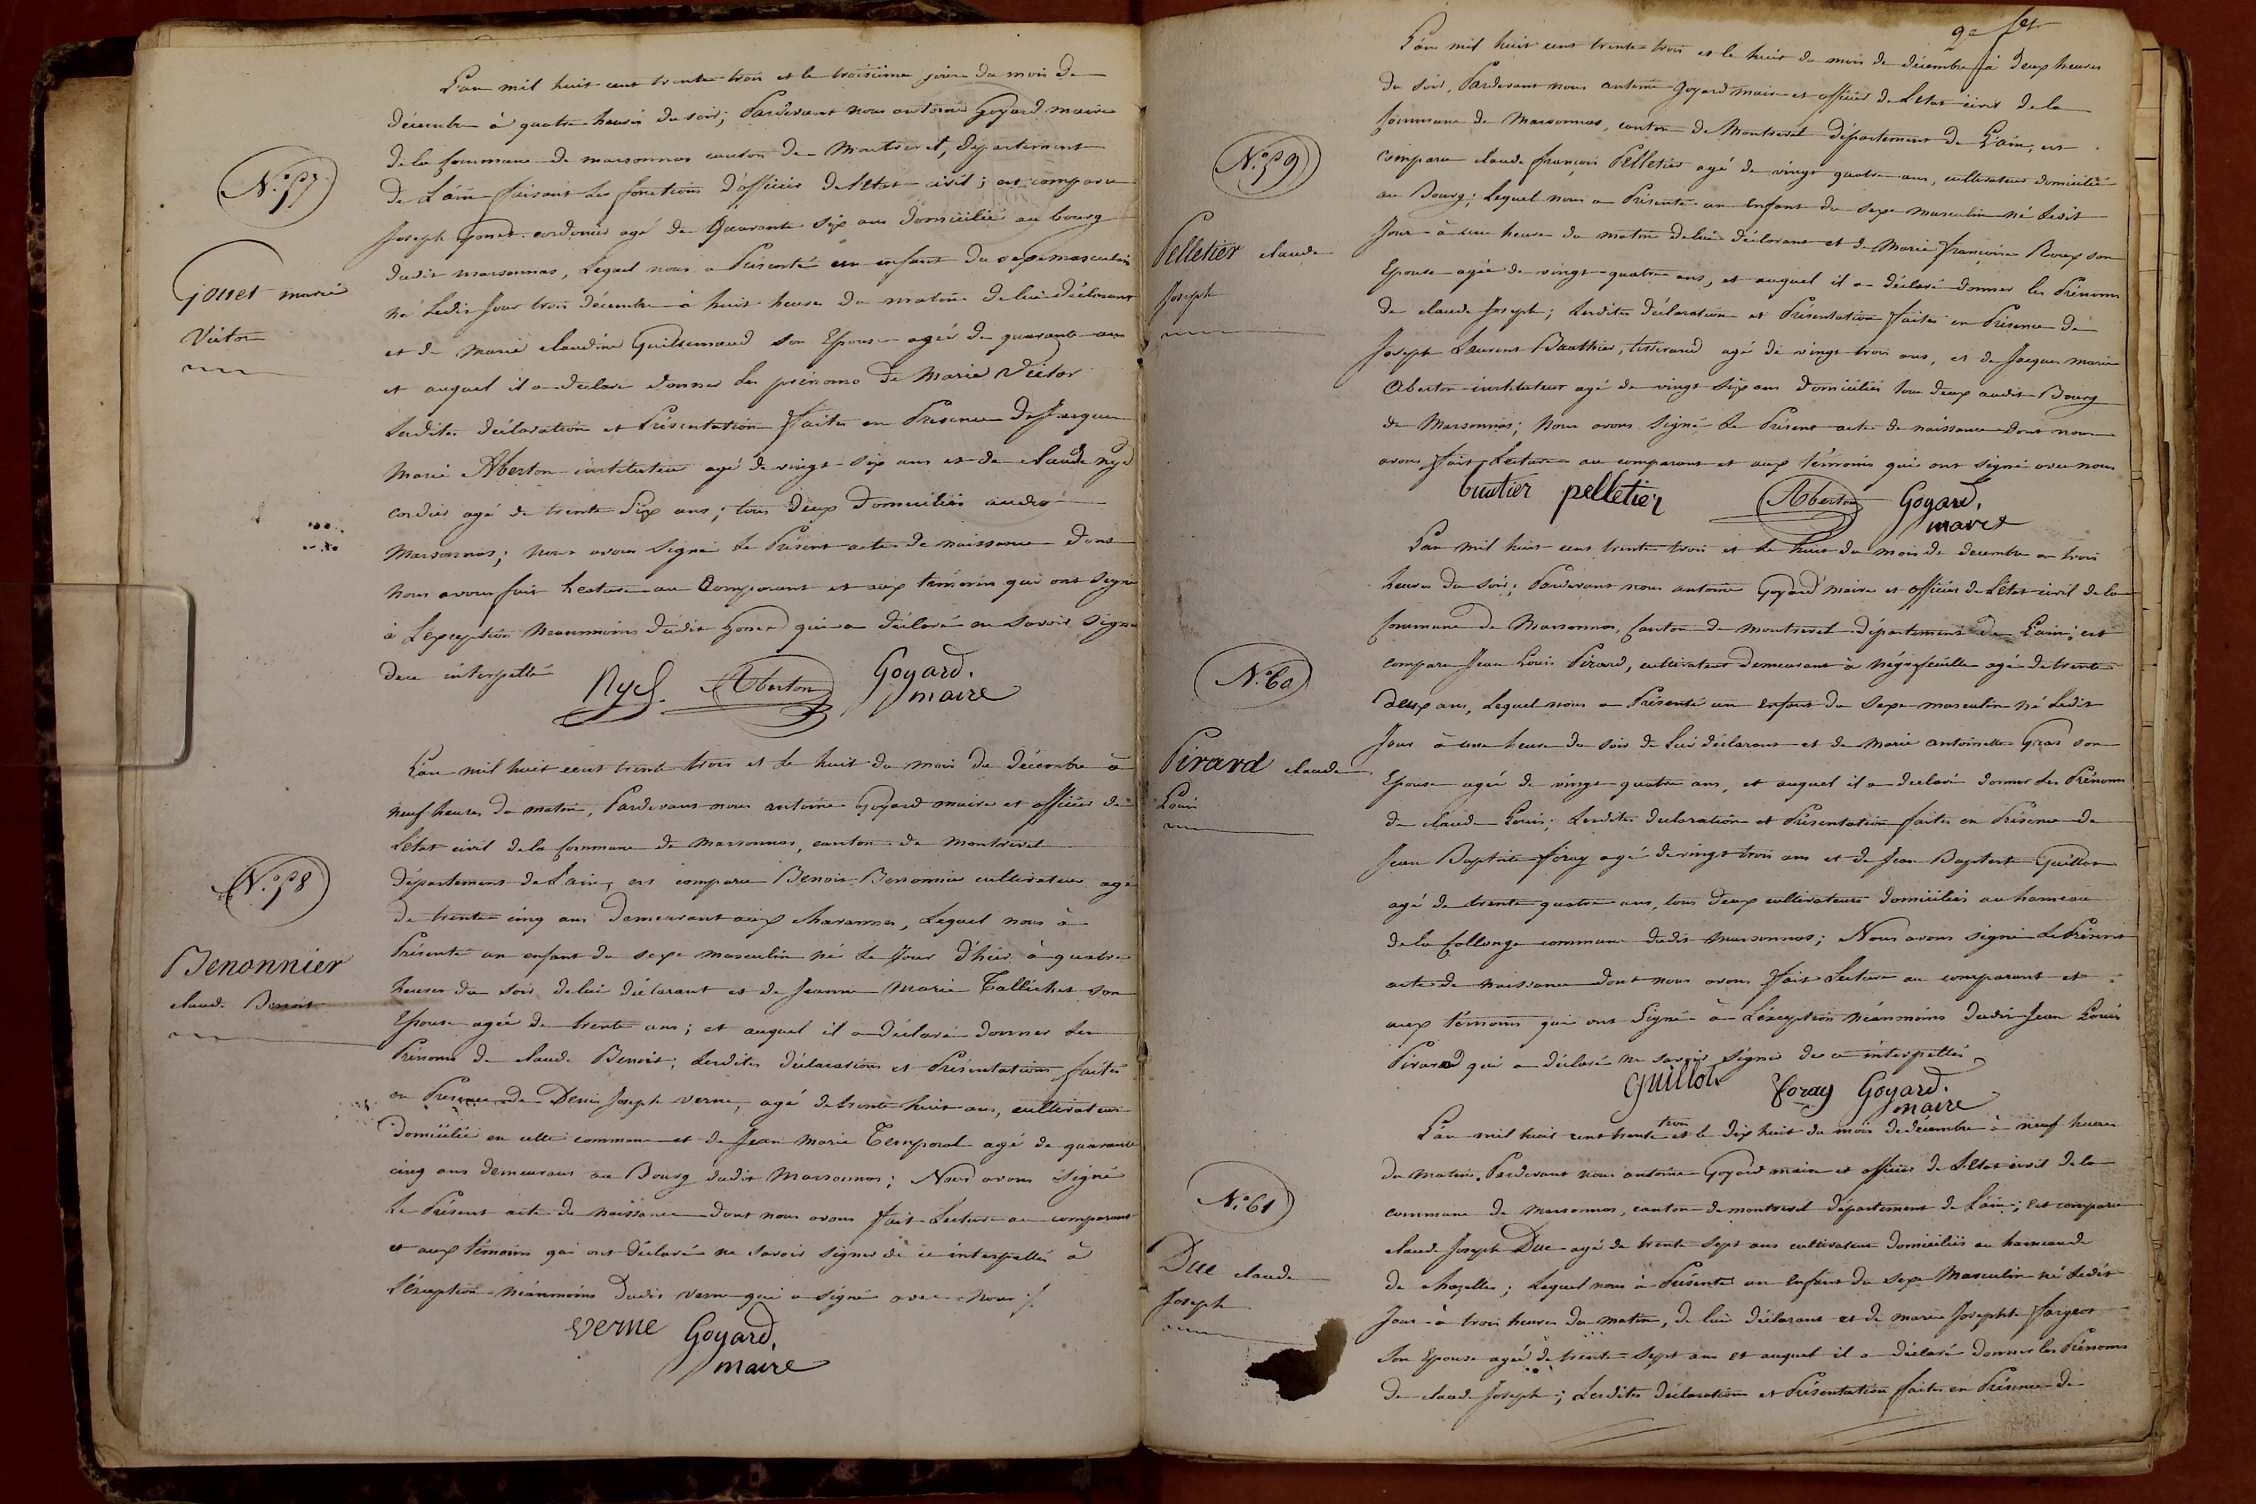 N.° 57
Gonet marie
Victor
L'an mil huit cent trente trois et le troisième jour du mois de
décembre à quatre heures du soir; Pardevant nous antoine Goyard maire
de la Commune de marsonnas canton de Montrevet, département
de L'ain faisant les fonctions d'officier de l'Etat civil; est comparu
Joseph Gonet cordonier agé de Quarante Six ans domicilié au bourg
dudit marsonnas, Lequel nous a Présenté un enfant du sexe masculin
né Ledit Jour trois décembre à huit heures du matin de lui déclarant
et de marie claudine Guillemaud son Epouse agée de quarante ans
et auquel il a déclaré donner les prénoms de Marie Victor
Lesdites déclaration et Présentation faites en Présence de Jacques
Marie Aberton instituteur agé de vingt-six ans et de claude Nyd
cordier agé de trente Six ans; tous deux Domiciliés audit
Marsonnas; nous avons signé le Présent acte de naissance dont
nous avons fait Lecture au Comparant et aux témoins qui ont signé
à L'exception néanmoins dudit Gonet qui a déclaré ne savoir signer
de ce interpellé
Nyd. Aberton Goyard.
maire
N.° 58
Benonnier
claude Benoit
L'an mil huit cent trente trois et le huit du mois de décembre à
neuf heures du matin, Pardevant nous antoine Goyard maire et officier de
L'Etat civil de la Commune de marsonnas, canton de montrevel
département de L'ain, est comparu Benoit Benonnier cultivateur agé
de trente cinq ans demeurant aux charannes, Lequel nous à
Présenté un enfant du sexe masculin né Le Jour d'hier à quatre
heures du soir de lui déclarant et de Jeanne Marie Tallichet son
Epouse agée de trente ans; et auquel il a déclaré donner les
Prénoms de claude Benoit; Lesdites déclarations et Présentations faites
en Présence de Denis Joseph verne, agé de trente huit ans, cultivateur
domicilié en cette commune et de Jean Marie Temporal agé de quarante
cinq ans demeurant au Bourg dudit Marsonnas; Nous avons signé
Le Présent acte de naissance dont nous avons fait Lecture au comparant
et aux témoins qui ont déclaré ne savoir signer de ce interpellés à
L'exception néanmoins dudit verne qui a signé avec nous ./.
verne Goyard.
maire
N.° 59
Pelletier claude
Joseph
L'an mil huit cent trente trois et le huit du mois de décembre à deux heures
du soir, Pardevant nous antoine Goyard maire et officier de L'Etat civil de la
Commune de Marsonnas, canton de Montrevel département de L'ain, est
comparu claude françois Pelletier agé de vingt quatre ans, cultivateur domicilié
au Bourg; Lequel nous a Présenté un Enfant du sexe masculin né Ledit
Jour à une heure du matin de lui déclarant et de Marie françoise Roux son
Epouse agée de vingt-quatre ans, et auquel il a déclaré donner les Prénoms
de claude Joseph; Lesdites déclaration et Présentation faites en Présence de
Joseph Laurent Buathier, tisserand agé de vingt trois ans, et de Jacques marie
Aberton instituteur agé de vingt Six ans domiciliés tous deux audit Bourg
de Marsonnas; Nous avons Signé Le Présent acte de naissance dont nous
avons fait Lecture au comparant et aux témoins qui ont signé avec nous
buatier pelletier Aberton Goyard.
maire
N.° 60
Pirard claude
Louis
L'an mil huit cent trente trois et le huit du mois de decembre à trois
heures du soir; Pardevant nous antoine Goyard maire et officier de L'Etat civil de la
Commune de Marsonnas, Canton de montrevel département de L'ain; est
comparu Jean Louis Pirard, cultivateur demeurant à négrefeuille agé de trente
deux ans, Lequel nous a Présenté un enfant du Sexe masculin né Ledit
Jour à une heure du soir de Lui déclarant et de Marie antoinette Gras son
Epouse agée de vingt quatre ans, et auquel il a déclaré donner les Prénoms
de claude Louis; Lesdites declaration et Présentation faites en Présence de
Jean Baptiste foray agé de vingt trois ans et de Jean Baptiste Guillot
agé de trente quatre ans, tous deux cultivateurs domiciliés au hameau
de la Collonge commune dudit Marsonnas; Nous avons signé Le Présent
acte de naissance dont nous avons fait Lecture au comparant et
aux témoins qui ont Signé à L'exception néanmoins dudit Jean Louis
Pirard qui a déclaré ne savoir signer de ce interpellé
Guillot foray Goyard.
maire
N.° 61
Duc claude
Joseph
L'an mil huit cent trente trois et le dix huit du mois de décembre à neuf heures
du matin. Pardevant nous antoine Goyard maire et officier de L'Etat civil de la
commune de Marsonnas, canton de montrevel département de L'ain; est comparu
claude Joseph Duc agé de trente-sept ans cultivateur domicilié au hameau de
de chazelles; Lequel nous à Présenté un Enfant du Sexe Masculin né Ledit
Jour à trois heures du matin, de lui déclarant et de marie Josephte fargeot
Son Epouse agée de trente-sept ans et auquel il a déclaré donner les Prénoms
de claude Joseph; Lesdites déclaration et Présentation faites en Présence de